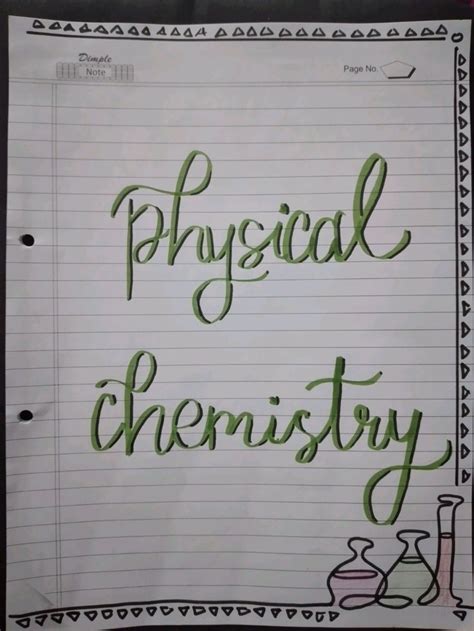 Dimple
Note
Page No.
Physical
chemistry